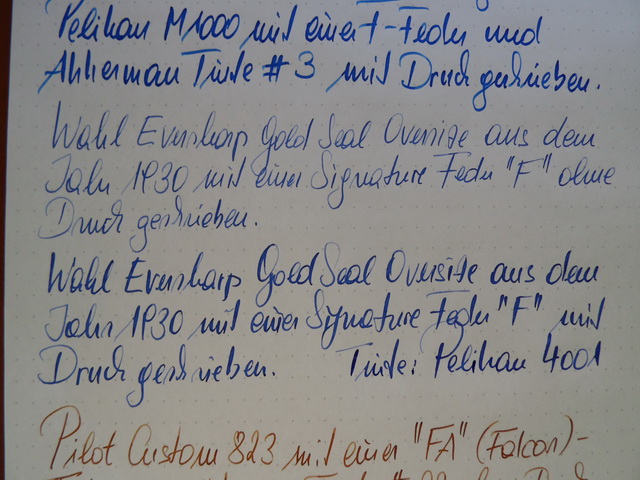 Pelikan M1000 mit einer F-Feder und
Akkerman Tinte #3 mit Druck geschrieben.
Wahl Eversharp Gold Seal Oversize aus dem
Jahr 1930 mit einer Signature Feder "F" ohne
Druck geschrieben.
Wahl Eversharp Gold Seal Oversize aus dem
Jahr 1930 mit einer Signature Feder "F" mit
Druck geschrieben. Tinte: Pelikan 4001
Pilot Custom 823 mit einer "FA" (Falcon)-